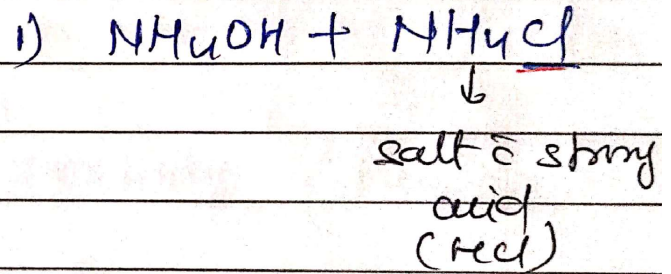 1) NH4OH + NH4Cl
↓
salt c̄ strong
acid
(HCl)